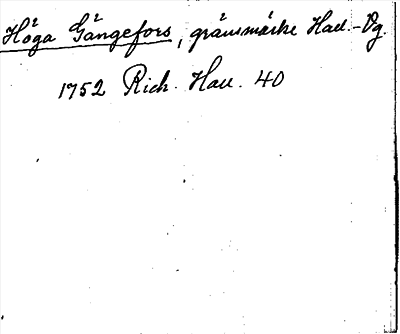 Höga Gångefors, gränsmärke Hall.-Vg.
1752 Rich. Hall. 40